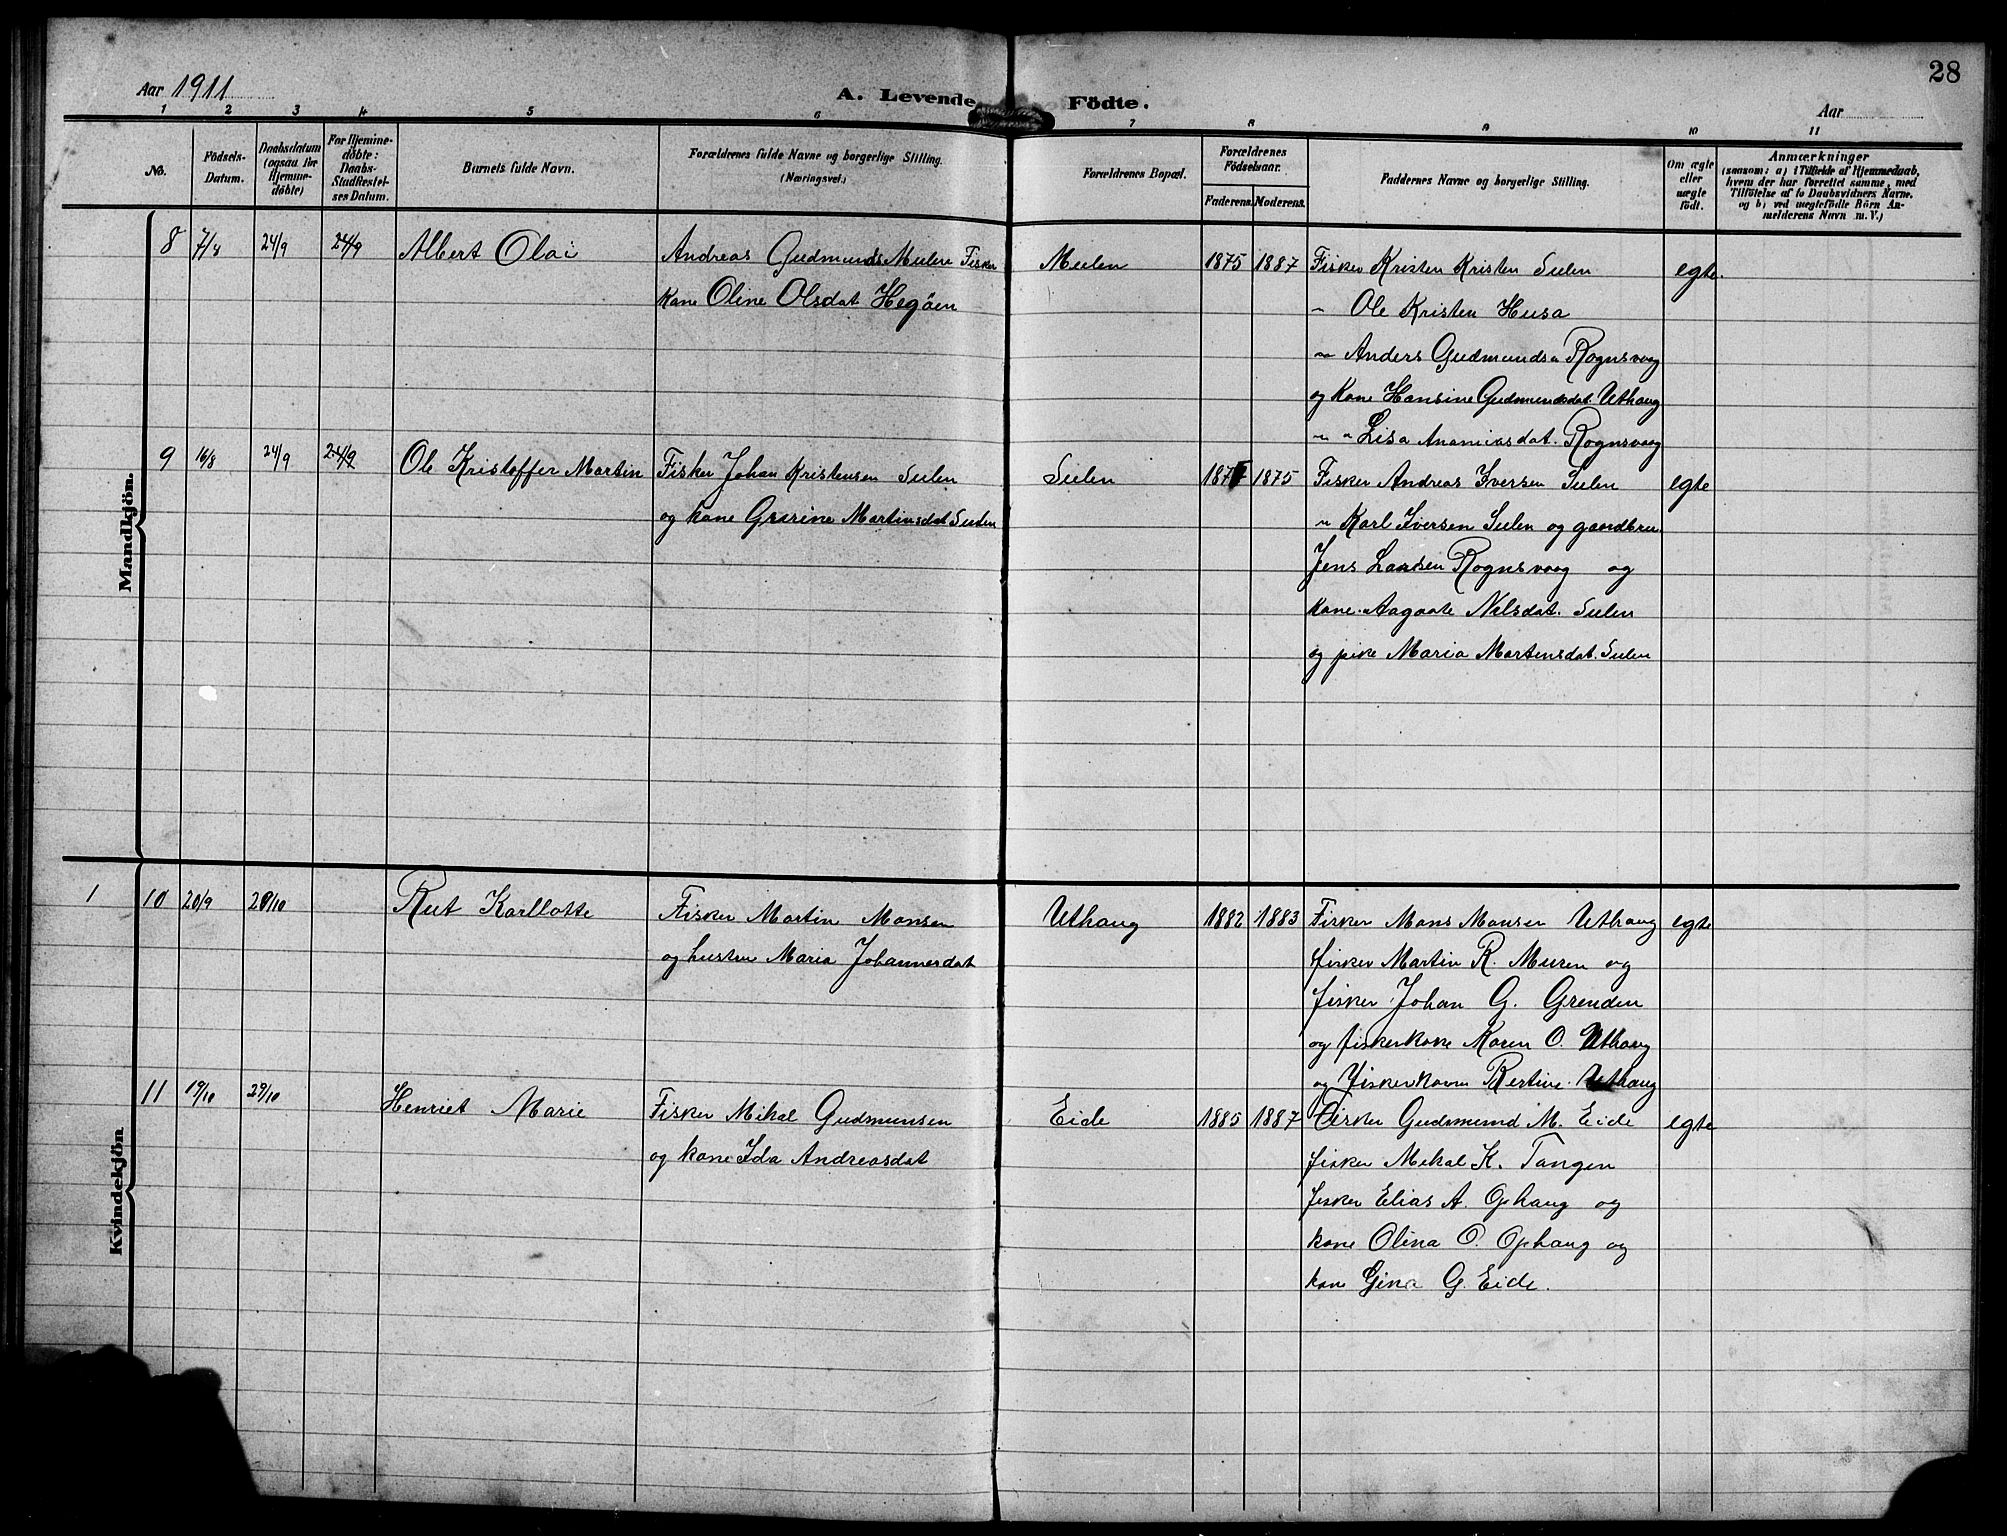 28
Aar 1911
A. Levende Födte.
Aar
1 2 3 4 5 6 7 8 9 10 11
No.
Födsels-Datum.
Daabsdatum (ogsaa for Hjemme-döbte)
For Hjemme-döbte: Daabs-Stadfæstel-ses Datum.
Barnets fulde Navn.
Forældrenes fulde Navne og borgerlige Stilling.
(Næringsvei.)
Forældrenes Bopæl.
Forældrenes Födselsaar.
Faderens. Moderens.
Faddernes Navne og borgerlige Stilling.
Om ægte eller uægte födt.
Anmærkninger
(saasom: a) i Tilfælde af Hjemmedaab,
hvem der har forrettet samme, med
Tilföielse af to Daabsvidners Navne,
og b) ved uegtefödte Börn An-
melderens Navn m. V.)
Mandkjön.
8 7/8 24/9 24/9 Albert Olai Andreas Gudmunds Mulen Fisker Mulen 1875 1887 Fisker Kristen Kristen Sulen egte.
kone Oline Olsdat Hegøen
" Ole Kristen Husa
" Anders Gudmundsn Rognsvaag
og kone Hansine Gudmundsdat. Uthaug
" " Lisa Ananiasdat. Rognsvaag
9 16/8 24/9 24/9 Ole Kristoffer Martin Fisker Johan Kristensen Sulen Sulen 1875 Fisker Andreas Iversen Sulen egte
og kone Martinsdat Sulen
" Karl Iversen Sulen og gaardbru.
Jens Larsen Rognsvaag og
kone Aagaate Nilsdat. Sulen
og pike Maria Martensdat. Sulen
Kvindekjön
1 10 20/9 29/10 Rut Karllotte Fisker Martin Monsen Uthaug 1882 1883 Fisker Mons Monsen Uthaug egte
og hustru Maria Johannesdat
fisker Martin R. Muren og
fisker Johan G. Grenden
og fiskerkone Karen O. Uthaug
og fiskerkone Bertine Uthaug
11 19/10 29/10 Henriet Marie Fisker Mikal Gudmunsen Eide 1885 1887 Fisker Gudmund M. Eide egte
og kone Ida Andreasdat
fisker Mikal K. Tangen
fisker Elias A. Ophaug og
kone Olina O. Ophaug og
kone Gina G. Eide.